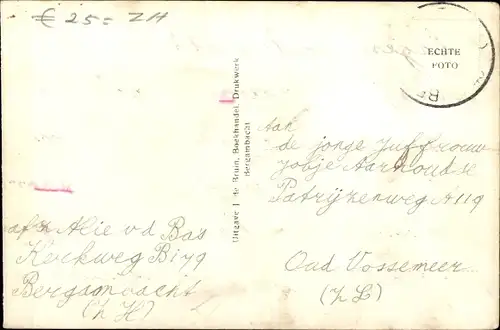 € 25= ZH
ECHTE
FOTO
Uitgave J. de Bruin, Boekhandel, Drukwerk
Bergambacht
Aan
de jonge Juffrouw
Jobje Aarnoudse
Patrijzenweg A119
Oud Vossemeer
(ZL)
afz Alie v d Bas
Kerkweg B179
Bergambacht
(ZH)